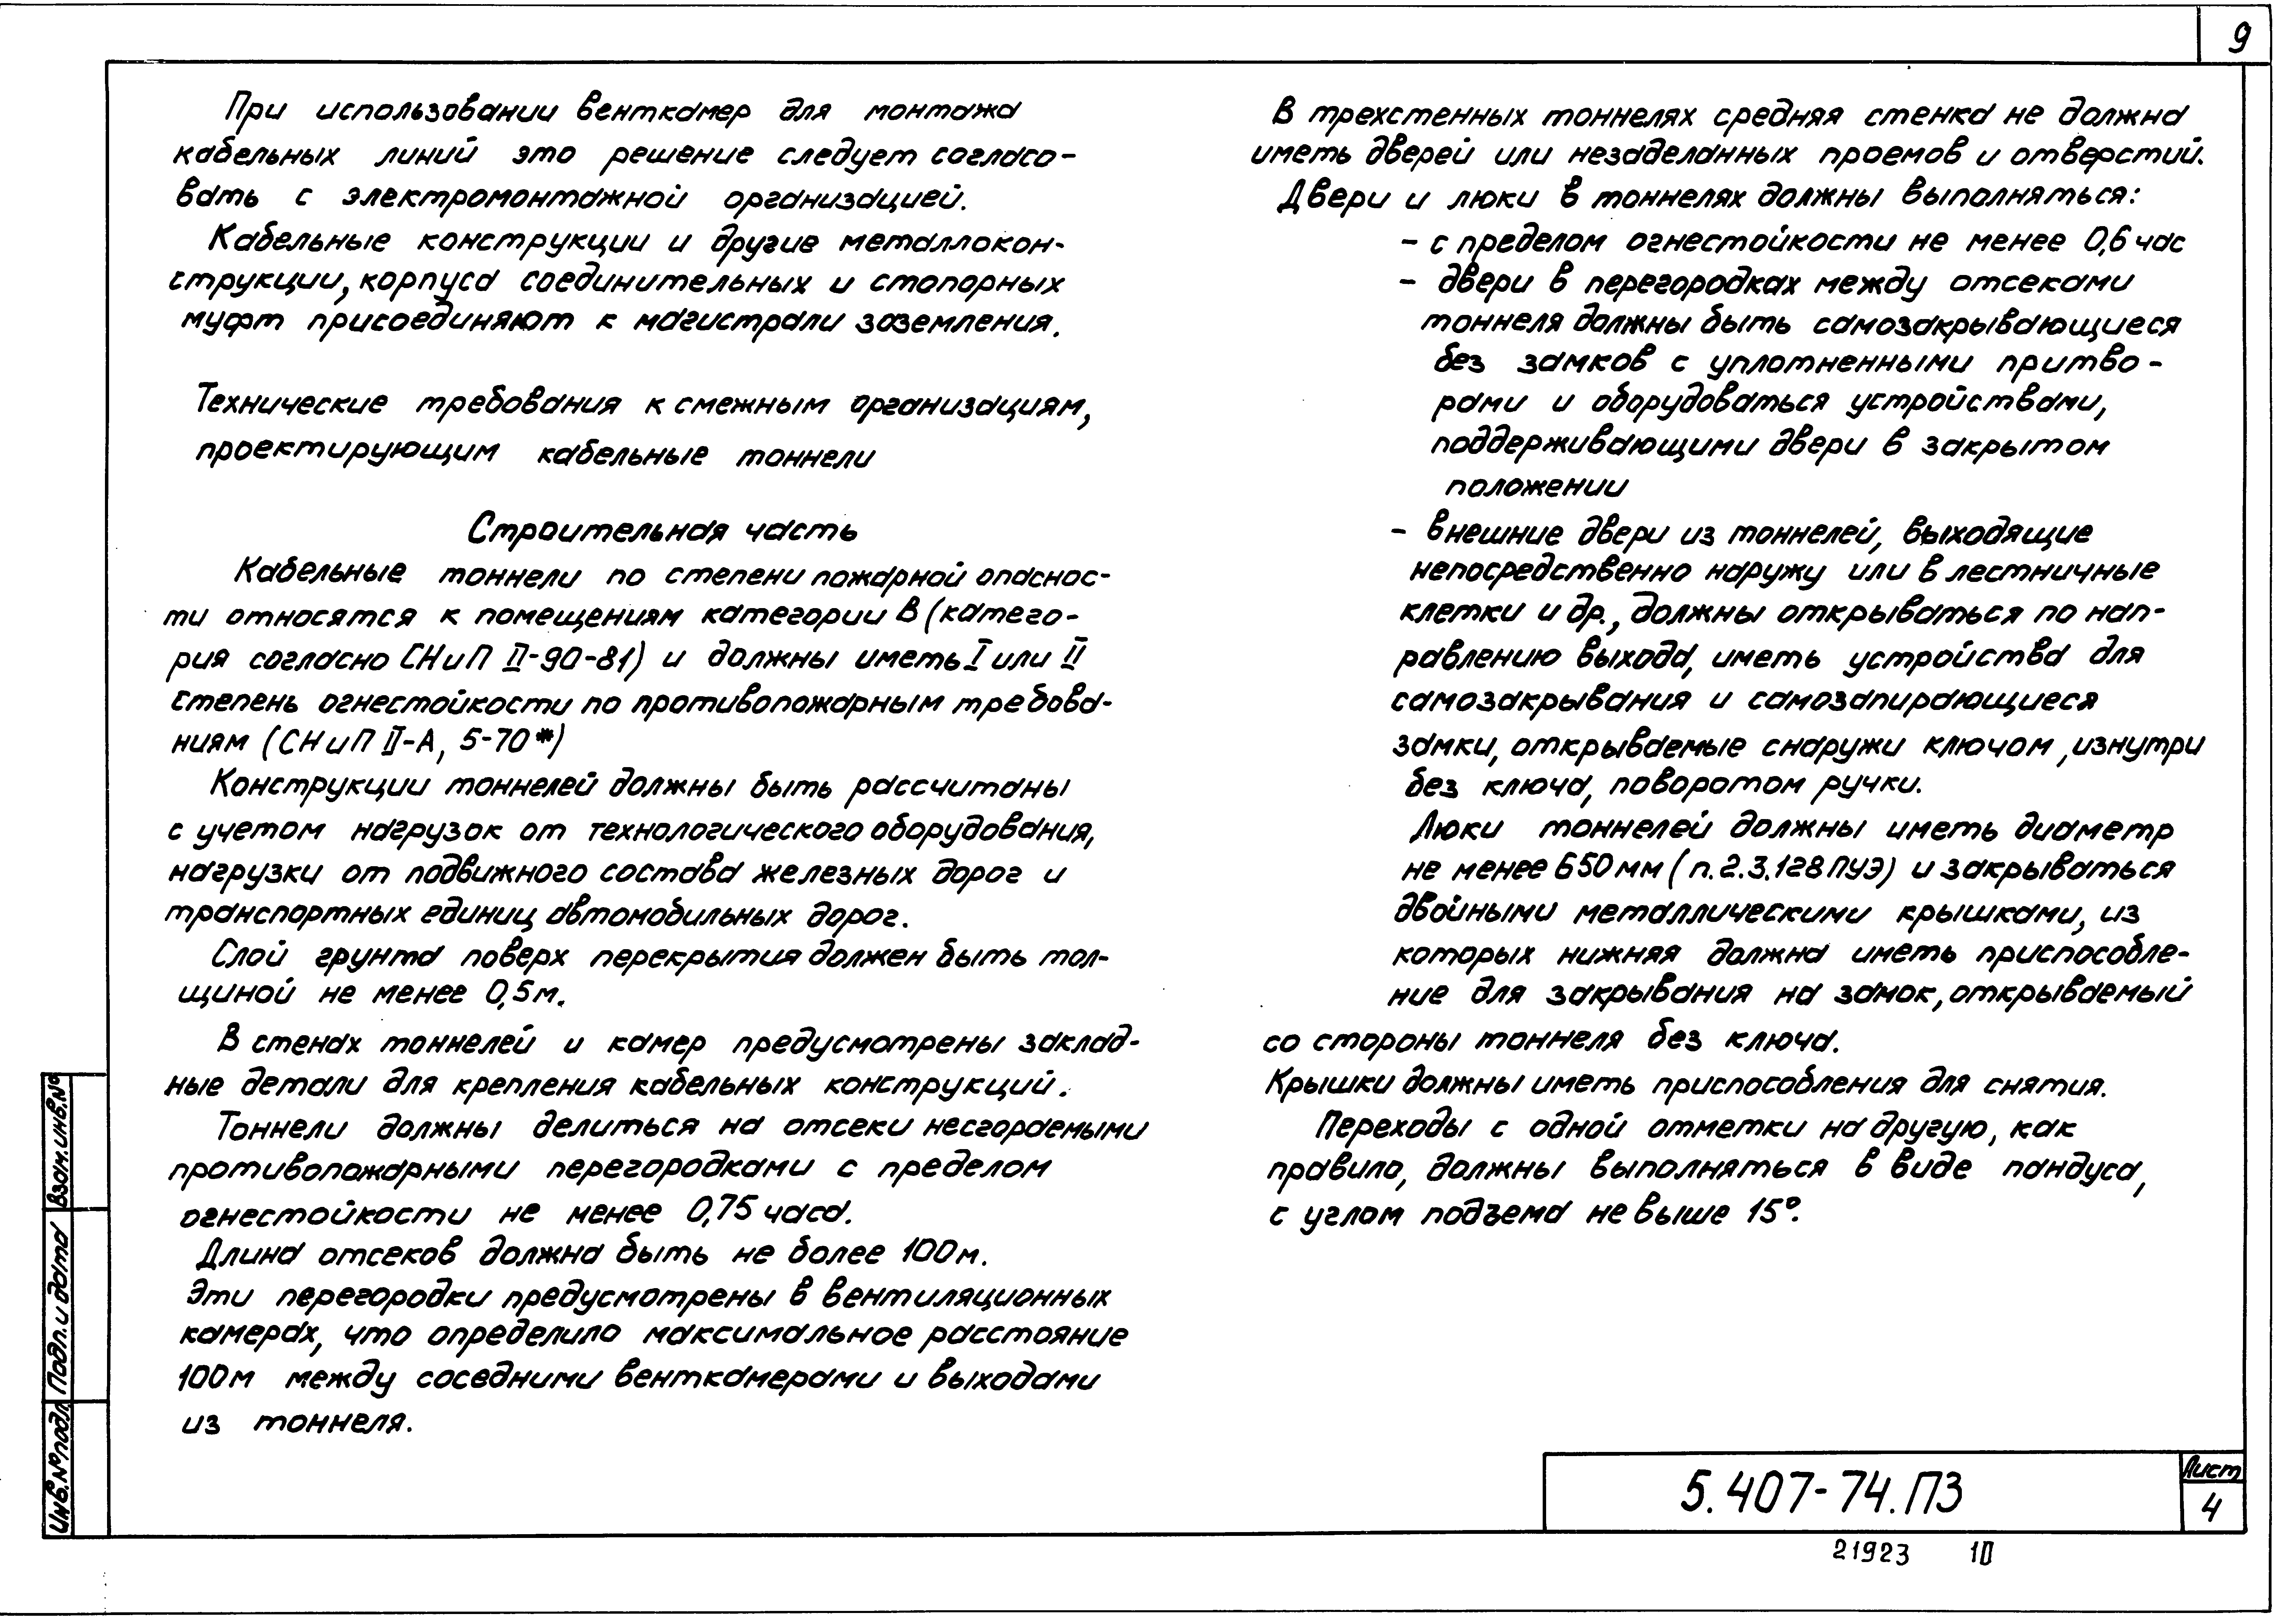 9
При использовании венткамер для монтажа
кабельных линий это решение следует согласо-
вать с электромонтажной организацией.
Кабельные конструкции и другие металлокон-
струкции, корпуса соединительных и стопорных
муфт присоединяют к магистрали заземления.
Технические требования к смежным организациям,
проектирующим кабельные тоннели
Строительная часть
Кабельные тоннели по степени пожарной опаснос-
ти относятся к помещениям категории В (катего-
рия согласно СНиП II-90-81) и должны иметь I или II
степень огнестойкости по противопожарным требова-
ниям (СНиП II-А, 5-70*)
Конструкции тоннелей должны быть рассчитаны
с учетом нагрузок от технологического оборудования,
нагрузки от подвижного состава железных дорог и
транспортных единиц автомобильных дорог.
Слой грунта поверх перекрытия должен быть тол-
щиной не менее 0,5м.
В стенах тоннелей и камер предусмотрены заклад-
ные детали для крепления кабельных конструкций.
Тоннели должны делиться на отсеки несгораемыми
противопожарными перегородками с пределом
огнестойкости не менее 0,75 часа.
Длина отсеков должна быть не более 100м.
Эти перегородки предусмотрены в вентиляционных
камерах, что определило максимальное расстояние
100м между соседними венткамерами и выходами
из тоннеля.
В трехстенных тоннелях средняя стенка не должна
иметь дверей или незаделанных проемов и отверстий.
Двери и люки в тоннелях должны выполняться:
- с пределом огнестойкости не менее 0,6 час
- двери в перегородках между отсеками
тоннеля должны быть самозакрывающиеся
без замков с уплотненными притво-
рами и оборудоваться устройствами,
поддерживающими двери в закрытом
положении
- внешние двери из тоннелей, выходящие
непосредственно наружу или в лестничные
клетки и др., должны открываться по нап-
равлению выхода, иметь устройства для
самозакрывания и самозапирающиеся
замки, открываемые снаружи ключом, изнутри
без ключа, поворотом ручки.
Люки тоннелей должны иметь диаметр
не менее 650мм (п.2.3.128 ПУЭ) и закрываться
двойными металлическими крышками, из
которых нижняя должна иметь приспособле-
ние для закрывания на замок, открываемый
со стороны тоннеля без ключа.
Крышки должны иметь приспособления для снятия.
Переходы с одной отметки на другую, как
правило, должны выполняться в виде пандуса,
с углом подъема не выше 15°.
Инв.№подл
Подп. и дата
Взам.инв.№
5.407-74.ПЗ
Лист
4
21923 10